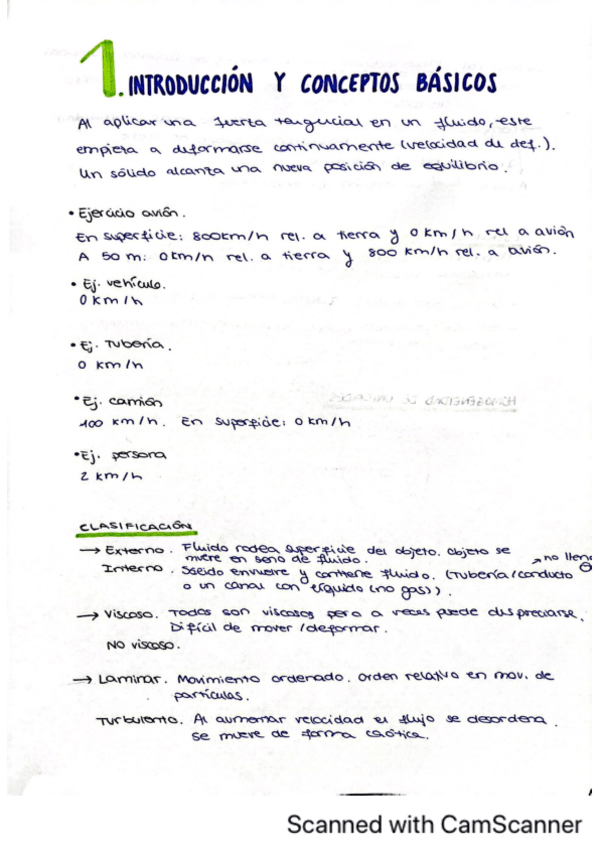 1. INTRODUCCIÓN Y CONCEPTOS BÁSICOS
Al aplicar una fuerza tangencial en un fluido, este
empieza a deformarse continuamente (velocidad de def.).
Un sólido alcanza una nueva posición de equilibrio.
• Ejercicio avión.
En superficie: 800km/h rel. a tierra y 0 km/h rel a avión
A 50 m: 0km/h rel. a tierra y 800 km/h rel. a avión.
• Ej. vehículo.
0 km/h
• Ej. Tubería.
0 km/h
• Ej. camión
100 km/h. En superficie: 0 km/h
• Ej. persona
2 km/h
CLASIFICACIÓN
→ Externo. Fluido rodea superficie del objeto. Objeto se
mueve en seno de fluido.
→ no llena
Interno. Sólido envuelve y contiene fluido. (Tubería/conducto
o un canal con líquido (no gas)).
→ Viscoso. Todos son viscosos pero a veces puede despreciarse.
Difícil de mover/deformar.
NO viscoso.
→ Laminar. Movimiento ordenado. Orden relativo en mov. de
partículas.
Turbulento. Al aumentar velocidad el flujo se desordena.
Se mueve de forma caótica.
Scanned with CamScanner